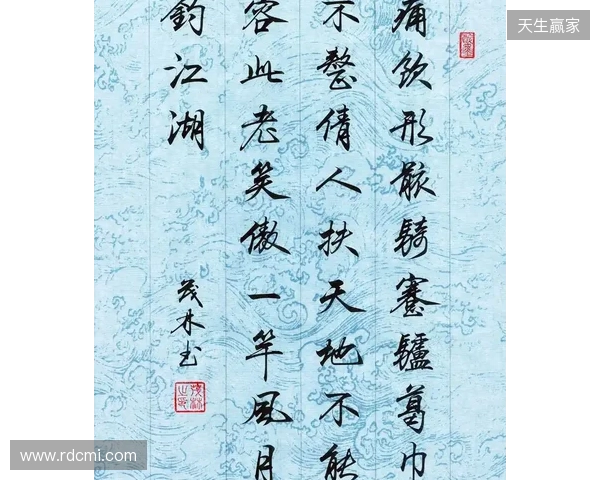 天生赢家
痛饮形骸騎蹇驢葛巾
不整倩人扶天地不能
容此老笑傲一竿風月
釣江湖
茂林书
www.rdcmi.com